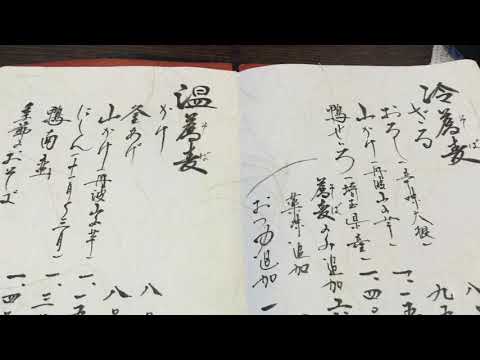 冷蕎麦
そば
ざる
九
おろし
一、一
山かけ（丹波山の芋）
一、四〇
鴨ぜいろ（埼玉県産）
一、
蕎麦のみ追加
そば
薬味追加
おつゆ追加
一
温蕎麦
そば
かけ
八
釜あげ
八〇
山かけ（丹波山の芋）
一、一
にしん（十一月〜三月）
一、三
鴨南蛮
一、四
季節のおそば
一、